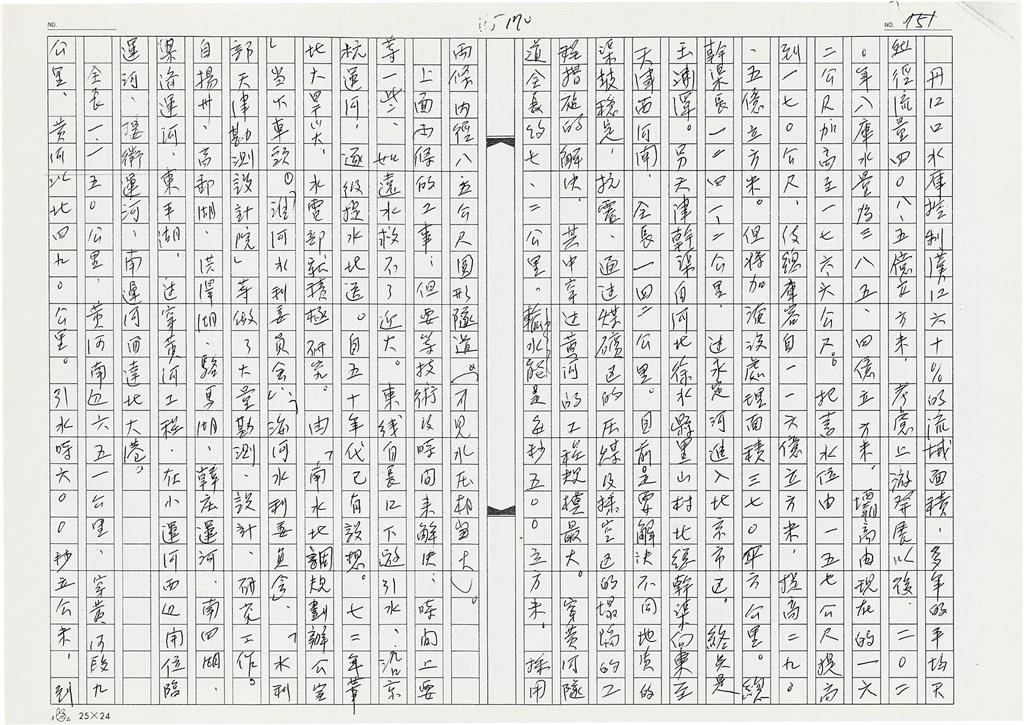 NO. 151
170
丹江口水庫控制漢江六十%的流域面積，多年的平均天
然徑流量四０八、五億立方米。考慮上游發展以後，二００二
０年入庫水量為三八五、四億立方米。壩高由現在的一六
二公尺加高至一七六六公尺。把蓄水位由一五七公尺提高
到一七０公尺，使總庫容自一一六億立方米，提高二九０
、五億立方米。但將加淹沒處理面積三七０平方公里。總
幹渠長一二四一、二公里，过永定河進入北京市区。終点是
玉渊潭。另天津幹渠自河北徐水縣里山村北總幹渠向東至
天津西河閘，全長一四二公里。目前主要解決不同地質的
渠坡穩定，抗震，通过煤礦区的压煤及採空区的塌陷的工
程措施的解決。其中穿过黃河的工程規模最大。穿黃河隧
道全長約七、二公里，輸水能是每秒五００立方米。採用
兩條內徑八五公尺圓形隧道（可見水压相當大）。
上面兩條的工事，但要等技術及時間來解決，時間上要
等一些，如遠水救不了近火。東线自長江下游引水，沿京
杭運河，逐级提水北送。自五十年代已有設想。七二年華
北大旱災。水電部就積極研究。由「南水北調規劃辦公室
」當火車頭，「淮河水利委員会」，「海河水利委員会」，「水利
部天津勘測設計院」等做了大量勘測、設計、研究工作。
自揚州、高郵湖、洪澤湖、駱馬湖、韓庄運河、南四湖、
梁济運河，東平湖，过穿黃河工程，在小運河西边開位臨
運河、接衛運河、南運河而達北大港。
全長一一五０公里，黃河南边六五一公里，穿黃河段九
公里，黃河以北四九０公里。引水時六００秒立公米，到
25×24